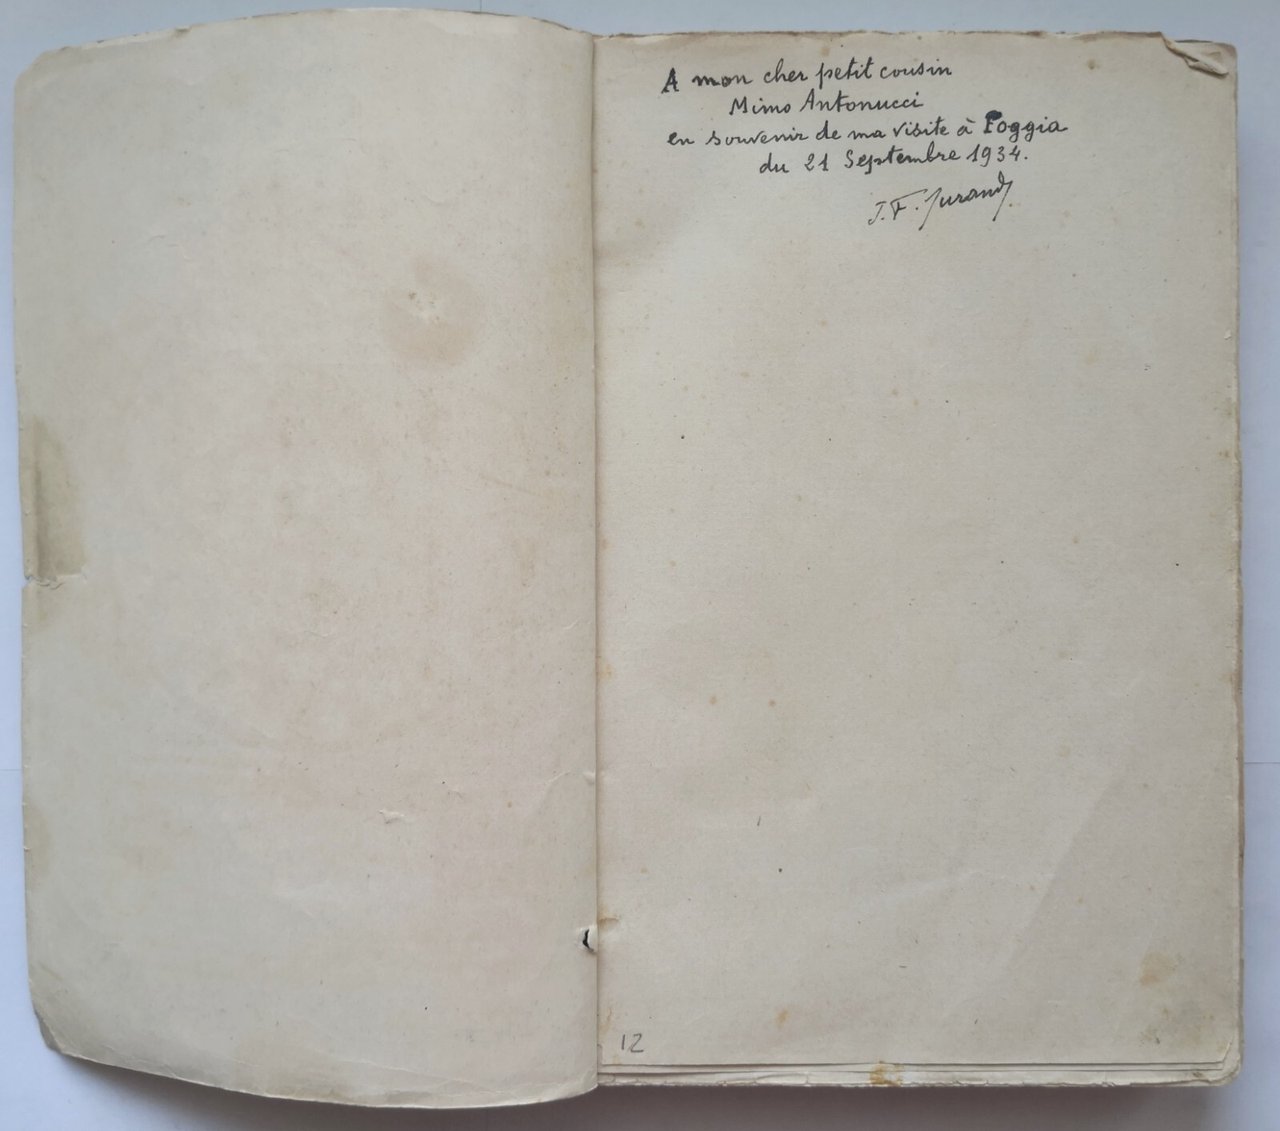 A mon cher petit cousin
Mimo Antonucci
en souvenir de ma visite à Foggia
du 21 Septembre 1934.
J. F. Jurand
12